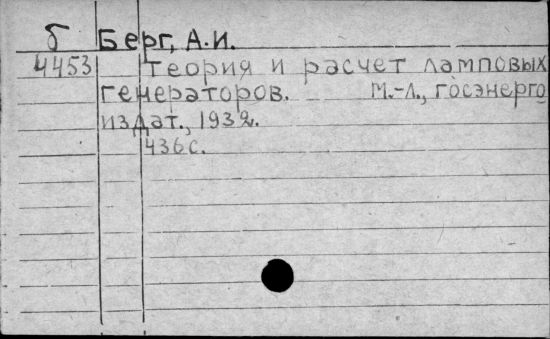 б Берг, А.И.
4453 Теория и расчет ламповых
генераторов. М.-Л., Госэнерго
издат., 1932.
436с.